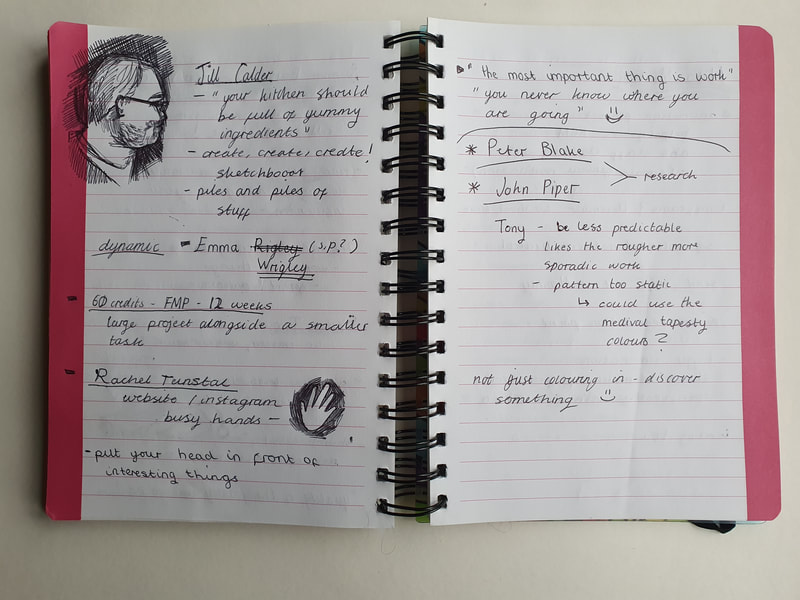 Jill Calder
- "your kitchen should
be full of yummy
ingredients"
- create, create, create!
sketchbook
- piles and piles of
stuff
dynamic - Emma Rigley (s.p?)
Wrigley
60 credits - FMP - 12 weeks
large project alongside a smaller
task
Rachel Tunstal
website / instagram
busy hands -
- put your head in front of
interesting things
"the most important thing is work"
"you never know where you
are going"
* Peter Blake
* John Piper
research
Tony - be less predictable
likes the rougher more
sporadic work
- pattern too static
↳ could use the
medival tapesty
colours?
not just colouring in - discover
something